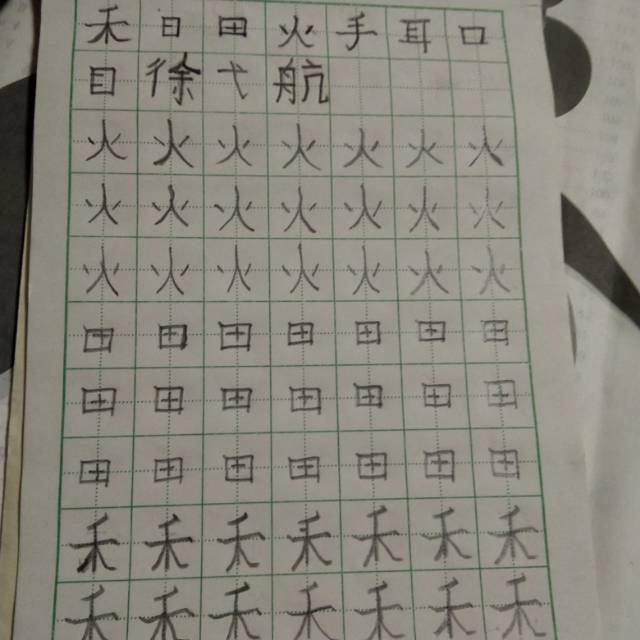 禾日田火手耳口
目徐弋航
火火火火火火火
火火火火火火火
火火火火火火火
田田田田田田田
田田田田田田田
田田田田田田田
禾禾禾禾禾禾禾
禾禾禾禾禾禾禾